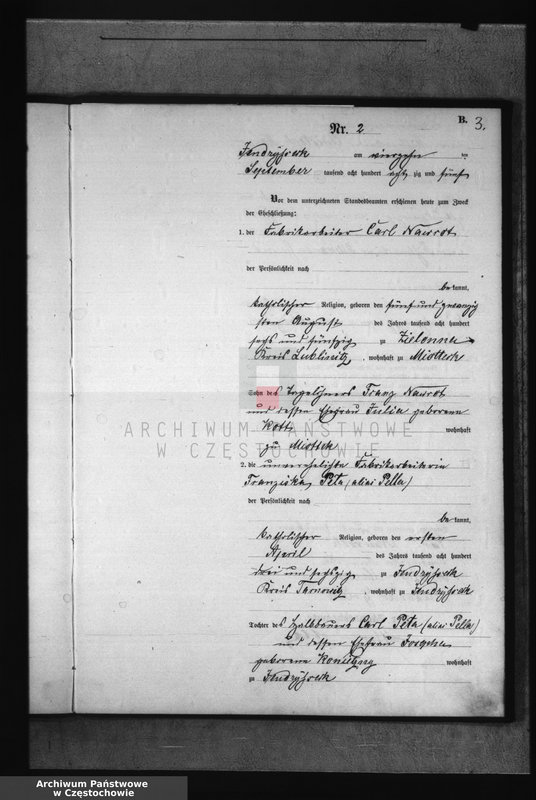 B.
3.
Nr. 2
Jendryssek am vierzehn ten
September tausend acht hundert acht zig und fünf
Vor dem unterzeichneten Standesbeamten erschienen heute zum Zweck
der Eheschließung:
1. der Fabrikarbeiter Carl Nawrot
der Persönlichkeit nach
be kannt,
katholischer Religion, geboren den fünf und zwanzig
sten August des Jahres tausend acht hundert
sechs und fünfzig zu Zielonna
Kreis Lublinitz, wohnhaft zu Miottek
Sohn des Tagelöhners Franz Nawrot
und dessen Ehefrau Julia geborene
Kott wohnhaft
zu Miottek
ARCHIWUM PAŃSTWOWE
W CZĘSTOCHOWIE
2. die unverehelichte Fabrikarbeiterin
Franziska Peta (alias Pella)
der Persönlichkeit nach
be kannt,
katholischer Religion, geboren den ersten
April des Jahres tausend acht hundert
drei und sechszig zu Jendryssek
Kreis Tarnowitz, wohnhaft zu Jendryssek
Tochter des Halbbauers Carl Peta (alias Pella)
und dessen Ehefrau
geborene wohnhaft
zu Jendryssek
Archiwum Państwowe
w Częstochowie